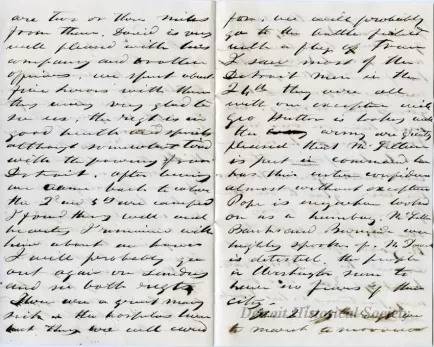 are two or three miles
from there. David is very
well pleased with his
company and brother
officers. we spent about
five hours with them
they were very glad to
see us; the regt is in
good health and spirits
although somewhat tired
with the journey from
Detroit. after leaving
we came back to where
the 2d and 5th are camped
I found they well and
hearty, I remained with
him about an hour
I will probably go
out again on Sunday
and see both regts
There are a great many
sick in the hospitals here
but they are well cared
for. we will probably
go to the battle field
with a flag of truce
I saw most of the
Detroit men in the
24th they were all
well one exception
Geo Hutton is
the army are greatly
pleased that McClellan
is put in command he
has their entire confidence
almost without exception
Pope is everywhere looked
on as a humbug. McClellan
Banks and Burnside are
highly spoken of. McDowell
is detested. the people
in Washington seem to
have no fears of the
city.
Detroit Historical Society
to march tomorrow